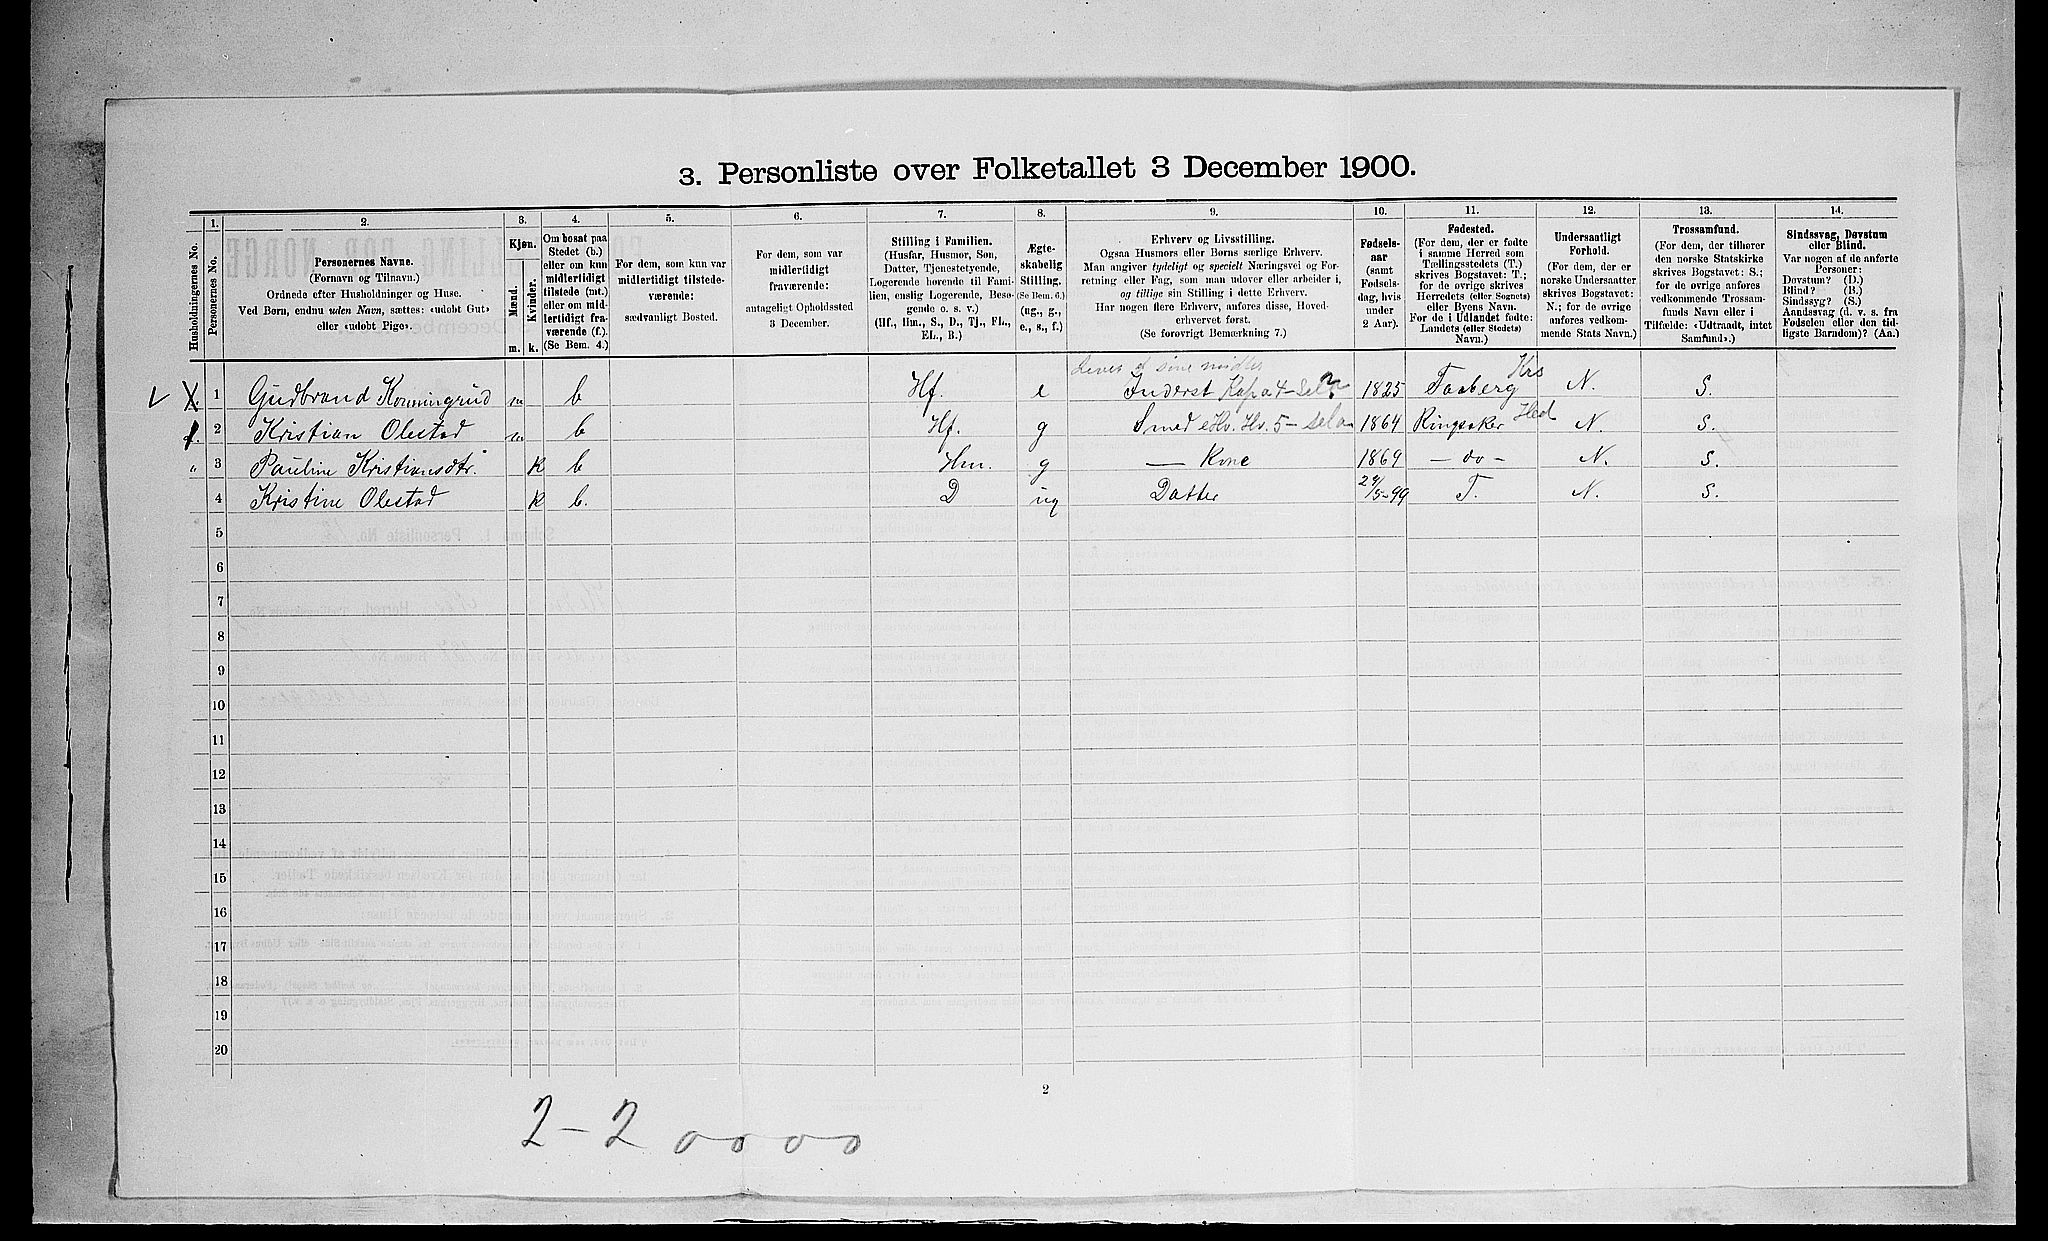 3. Personliste over Folketallet 3 December 1900.
1. 2. 3. 4. 5. 6. 7. 8. 9. 10. 11. 12. 13. 14.
Husholdningernes No.
Personernes No.
Personernes Navne.
(Fornavn og Tilnavn.)
Ordnede efter Husholdninger og Huse.
Ved Børn, endnu uden Navn, sættes: «udøbt Gut»
eller «udøbt Pige».
Kjøn.
Mænd.
Kvinder.
m. k.
Om bosat paa
Stedet (b.)
eller om kun
midlertidigt
tilstede (mt.)
eller om mid-
lertidigt fra-
værende (f.).
(Se Bem. 4.)
For dem, som kun var
midlertidigt tilstede-
værende:
sædvanligt Bosted.
For dem, som var
midlertidigt
fraværende:
antageligt Opholdssted
3 December.
Stilling i Familien.
(Husfar, Husmor, Søn,
Datter, Tjenestetyende,
Logerende hørende til Fami-
lien, enslig Logerende, Besø-
gende o. s. v.)
(Hf., Hm., S., D., Tj., FL.,
EL., B.)
Ægte-
skabelig
Stilling.
(Se Bem. 6.)
(ug., g.,
e., s., f.)
Erhverv og Livsstilling.
Ogsaa Husmors eller Børns særlige Erhverv.
Man angiver tydeligt og specielt Næringsvei og For-
retning eller Fag, som man udøver eller arbeider i,
og tillige sin Stilling i dette Erhverv.
Har nogen flere Erhverv, anføres disse, Hoved-
erhvervet først.
(Se forøvrigt Bemærkning 7.)
Fødsels-
aar
(samt
Fødsels-
dag, hvis
under
2 Aar).
Fødested.
(For dem, der er fødte
i samme Herred som
Tællingsstedets (T.)
skrives Bogstavet: T.;
for de øvrige skrives
Herredets (eller Sognets)
eller Byens Navn.
For de i Udlandet fødte:
Landets (eller Stedets)
Navn.)
Undersaatligt
Forhold.
(For dem, der er
norske Undersaatter
skrives Bogstavet:
N.; for de øvrige
anføres vedkom-
mende Stats Navn.)
Trossamfund.
(For dem, der tilhører
den norske Statskirke
skrives Bogstavet: S.;
for de øvrige anføres
vedkommende Trossam-
funds Navn eller i
Tilfælde: «Udtraadt, intet
Samfund».)
Sindssvag, Døvstum
eller Blind.
Var nogen af de anførte
Personer:
Døvstum? (D.)
Blind? (B.)
Sindssyg? (S.)
Aandssvag (d. v. s. fra
Fødselen eller den tid-
ligste Barndom)? (Aa.)
Lever af sine midler
1 Gudbrand m b Hf. e Inderst 1825 Faaberg Krs N. S.
2 Kristian Olestad m b Hf. g Smed 1864 Ringsaker Hed N. S.
" 3 Pauline Kristiansdtr. k b Hm. g — Kone 1869 — do — N. S.
4 Kristine Olestad k b. D ug Datter 29/5-99 T. N. S.
5
6
7
8
9
10
11
12
13
14
15
16
17
18
19
20
2
2 - 2